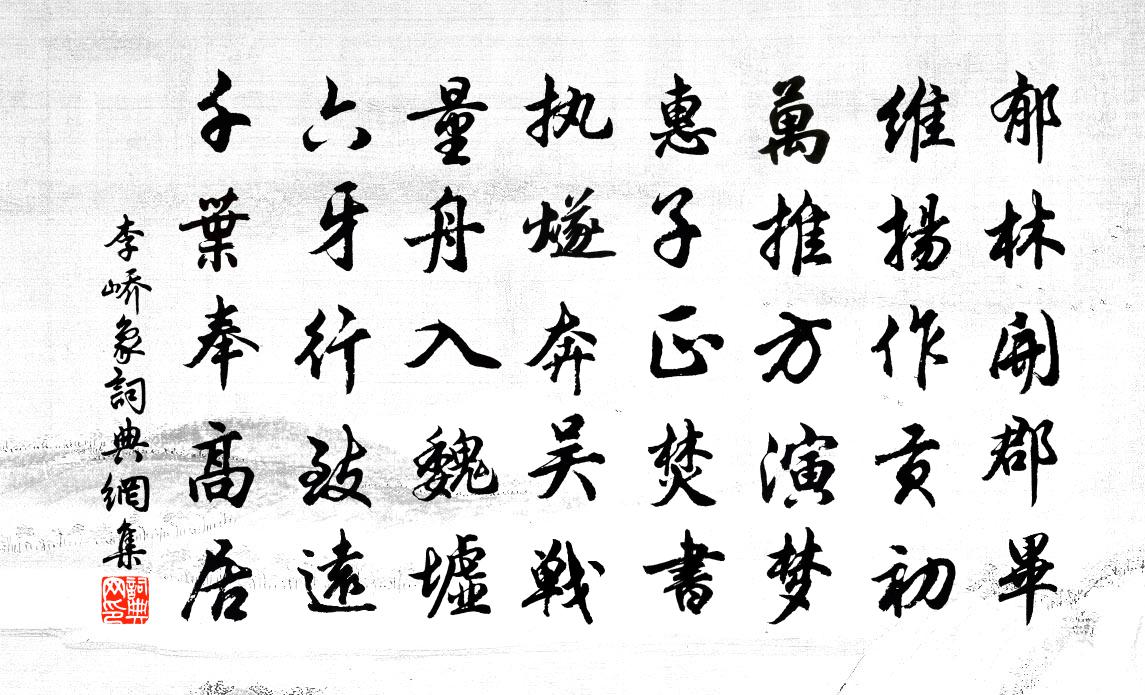 郁林開郡畢
維揚作貢初
萬推方演梦
惠子正焚書
执燧奔吴戦
量舟入魏墟
六牙行致遠
千葉奉高居
李嶠象詞典網集
詞典网印